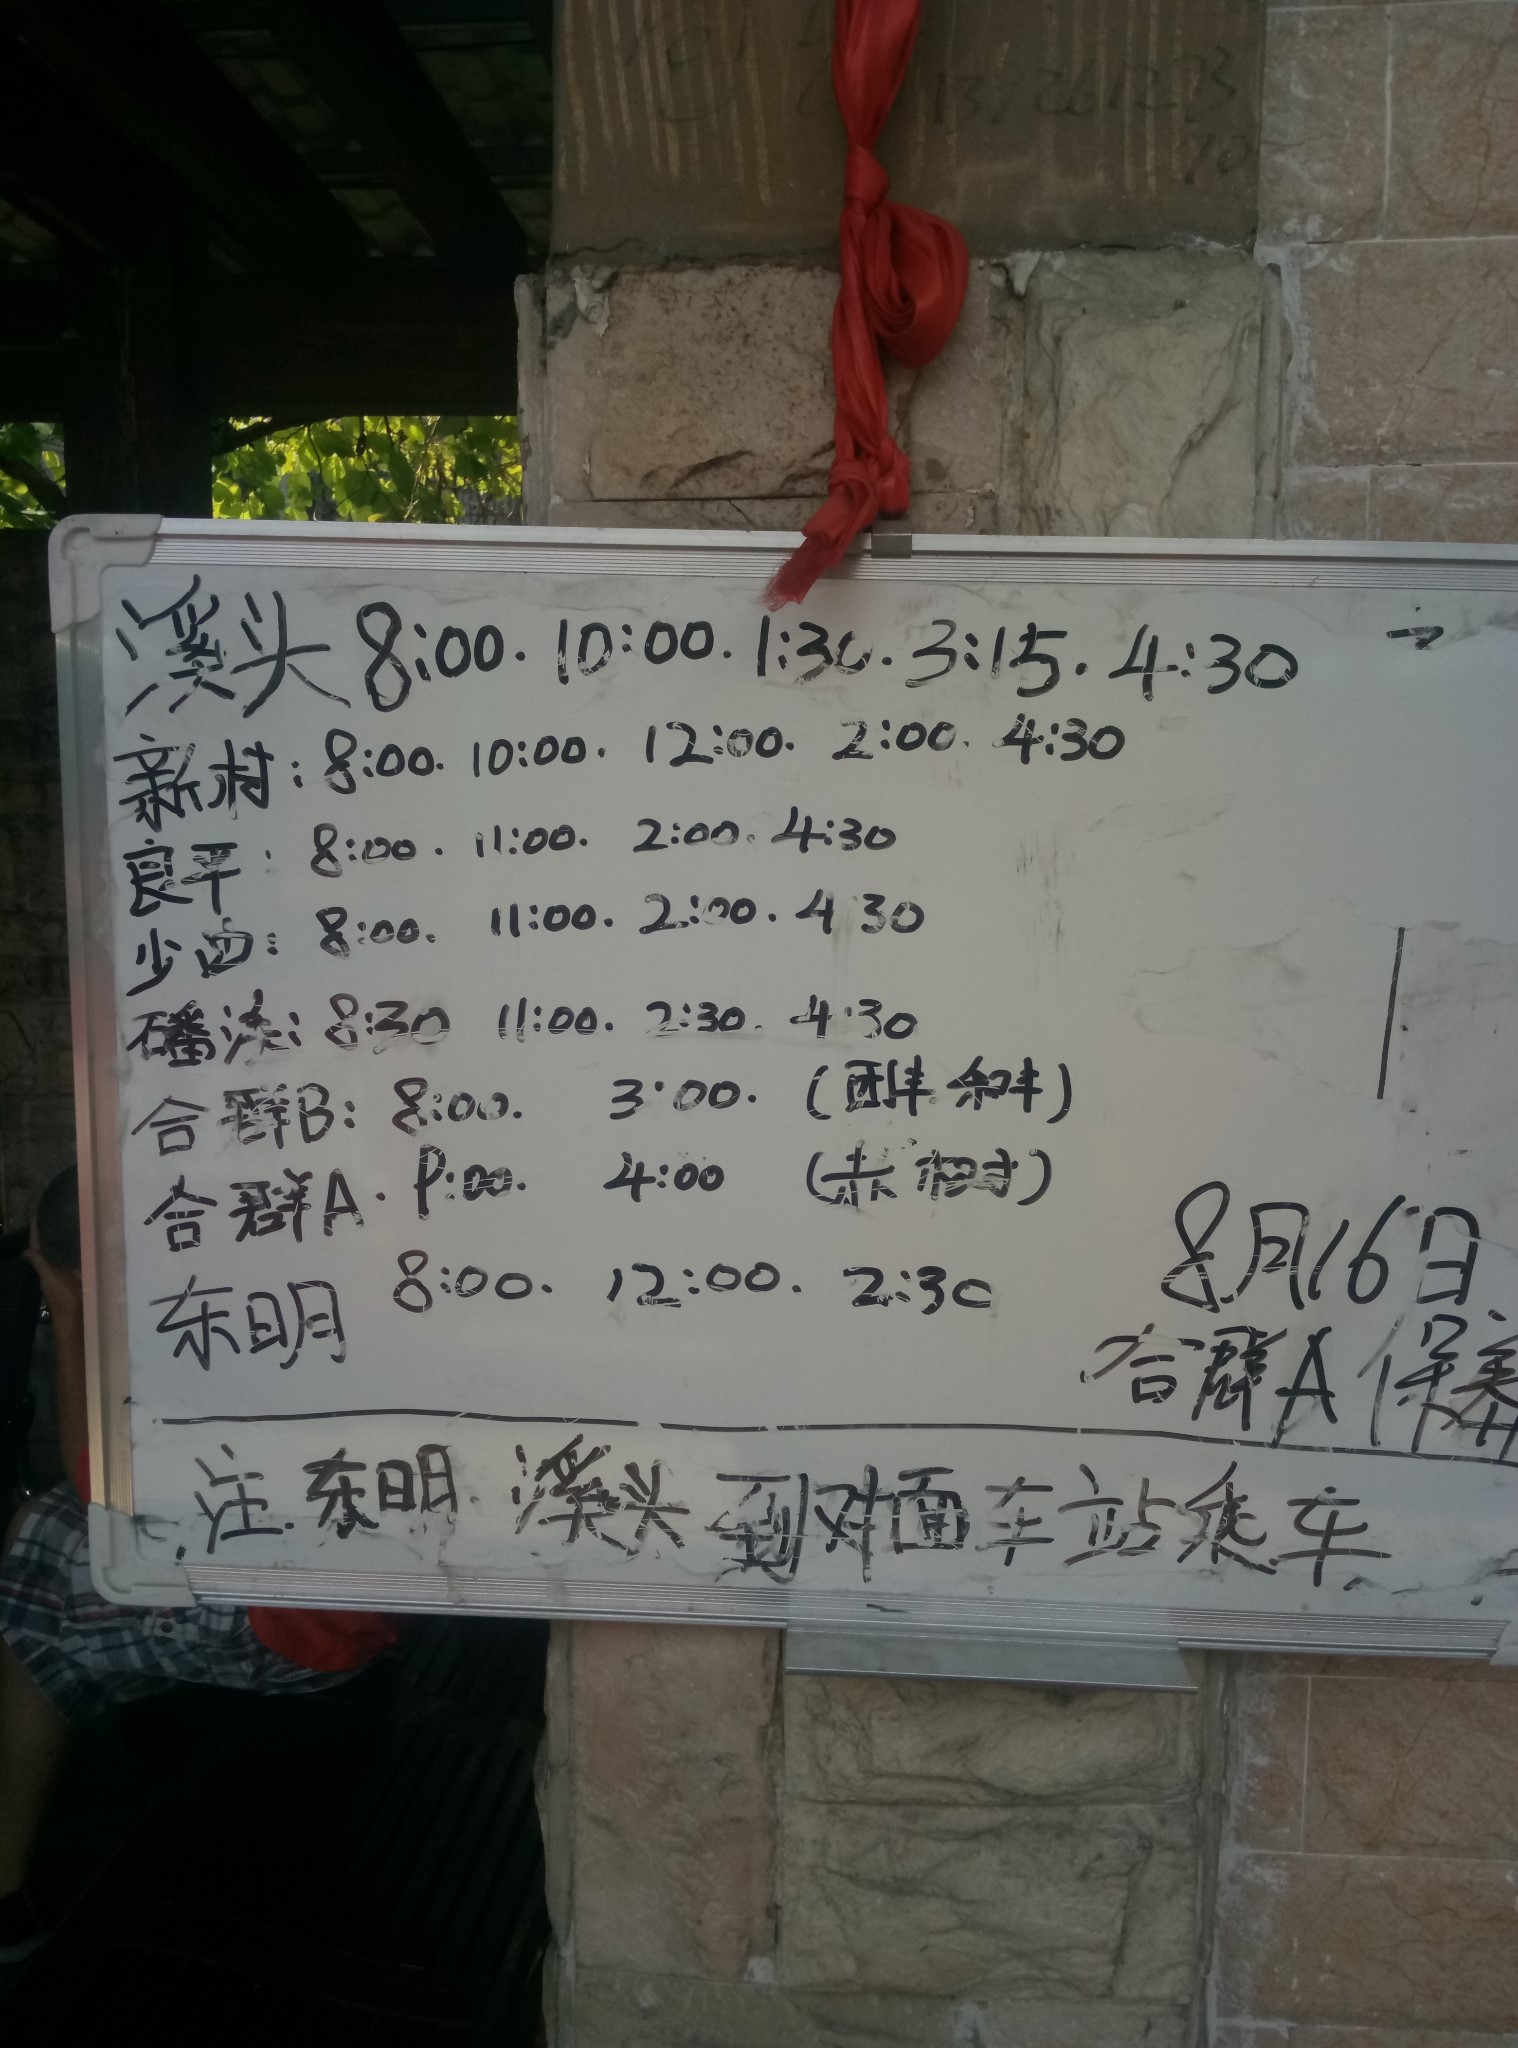 溪头 8:00. 10:00. 1:30. 3:15. 4:30
新村: 8:00. 10:00. 12:00. 2:00. 4:30
良平: 8:00. 11:00. 2:00. 4:30
少西: 8:00. 11:00. 2:00. 4:30
磻溪: 8:30 11:00. 2:30. 4:30
合群B: 8:00. 3:00. (团丰.和丰)
合群A. 9:00. 4:00 (赤 相对)
东明 8:00. 12:00. 2:30
8月16日
合群A保养
注.东明.溪头到对面车站乘车